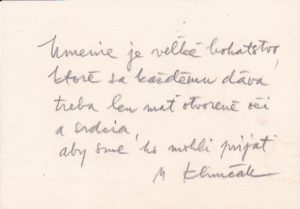 Umenie je veľké bohatstvo,
ktoré sa každému dáva
treba len mať otvorené oči
a srdcia,
aby sme ho mohli prijať
M Klimčák